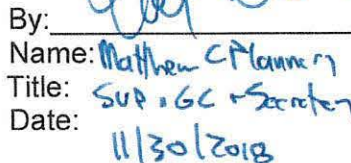 By:
Name: Matthew C Flannery
Title: SVP, GC + Secretary
Date:
11/30/2018